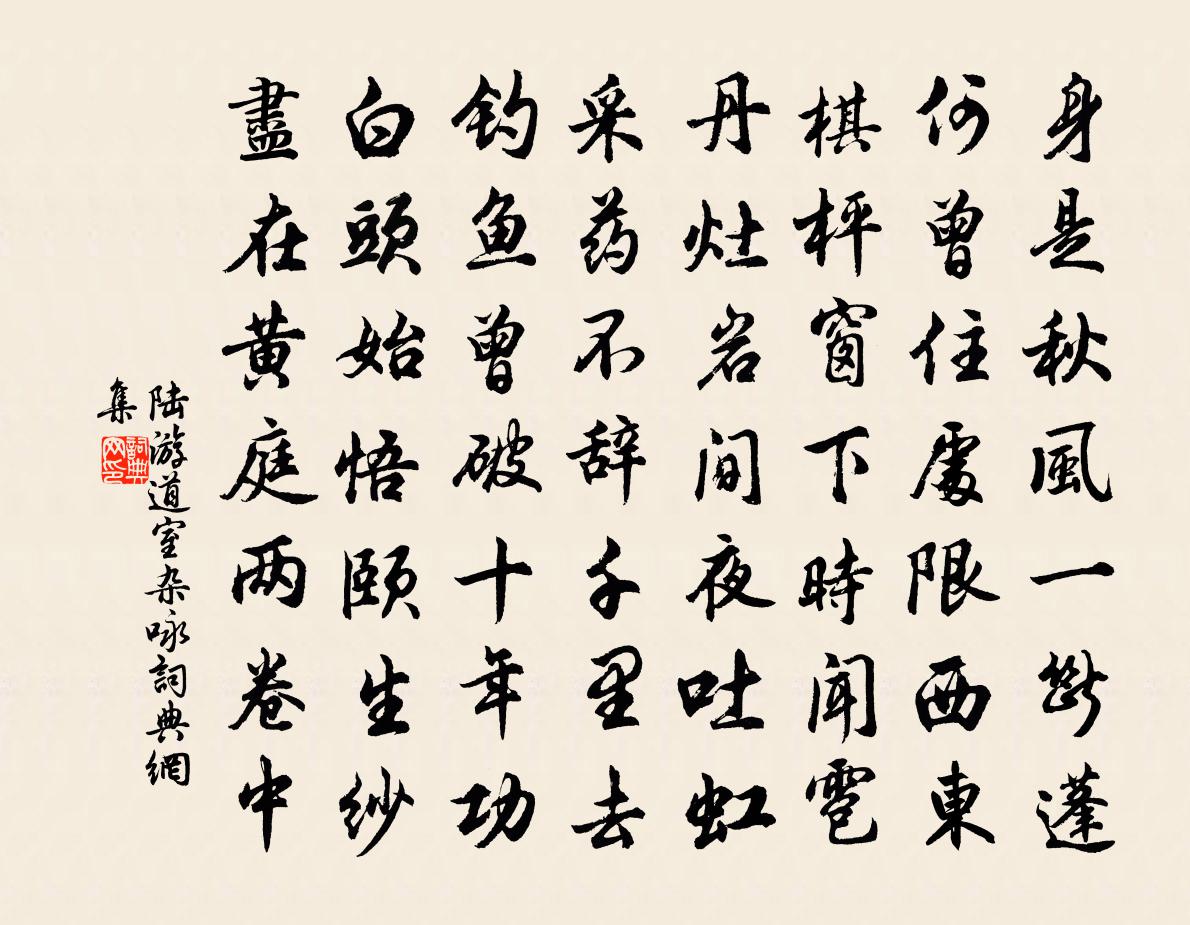 身是秋風一斷蓬
何曾住處限西東
棋枰窗下時聞雹
丹灶岩間夜吐虹
采药不辞千里去
钓鱼曾破十年功
白頭始悟颐生妙
盡在黄庭两卷中
陆游道室杂咏詞典網
集
詞典
网印